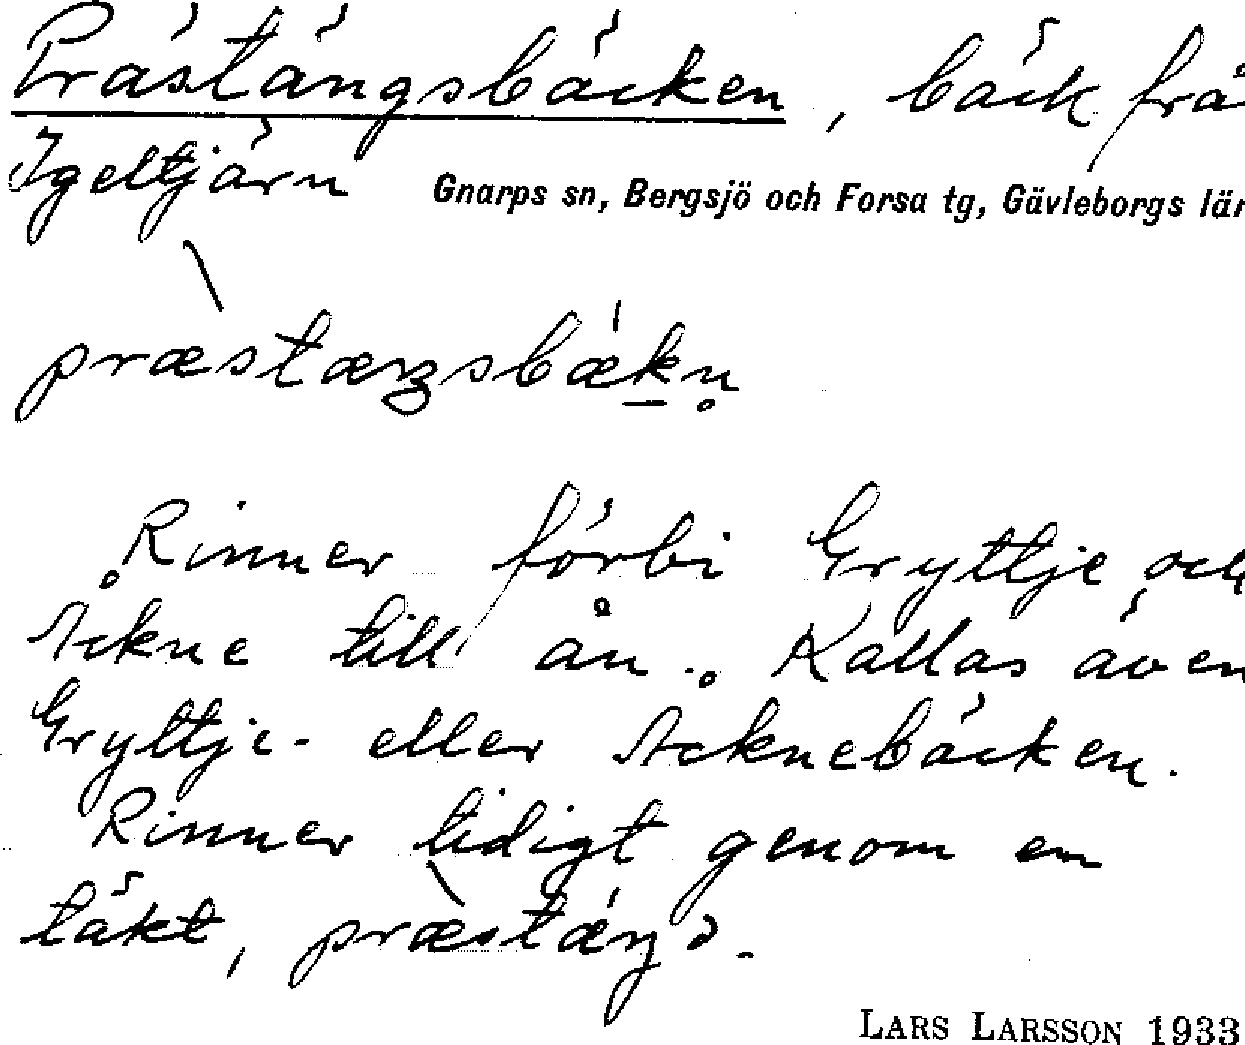 Prästängsbäcken, bäck frå
Igeltjärn Gnarps sn, Bergsjö och Forsa tg, Gävleborgs län
præstæŋsbækn̥
Rinner förbi Gryttje och
Åckne till ån. Kallas även
Gryttje- eller Åcknebäcken.
Rinner tidigt genom en
täkt, præstæŋa.
LARS LARSSON 1933